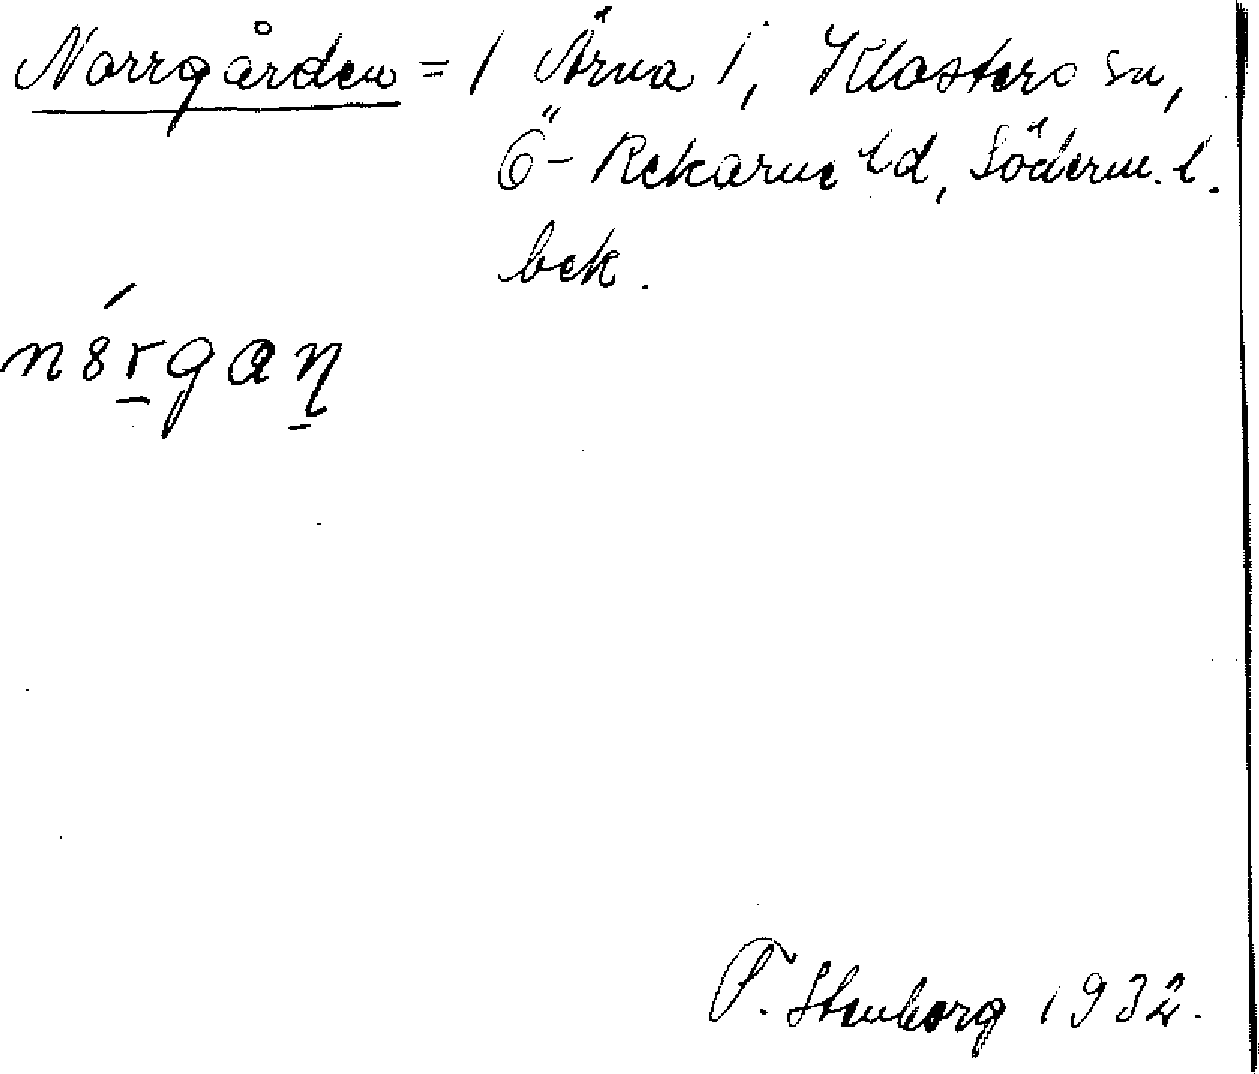 Norrgården = / Ärna /, Klosters sn,
Ö-Rekarne hd, Söderm. l.
bek.
n8́rgaṇ
T. Stenborg 1932.